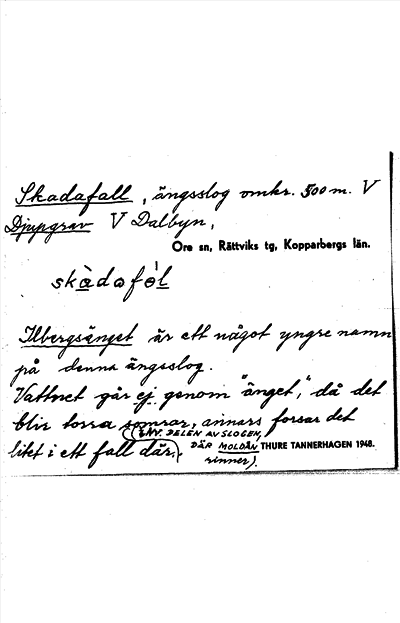 Skadafall, ängsslog omkr. 500 m. V
Djupgrav V Dalbyn,
Ore sn, Rättviks tg, Kopparbergs län.
skàdaføl
Ilbergsänget är ett något yngre namn
på denna ängsslog.
Vattnet går ej genom "änget", då det
blir torra somrar, annars forsar det
litet i ett fall där.
(NV. DELEN AV SLOGEN,
DÄR MOLDÅN
rinner).
THURE TANNERHAGEN 1948.